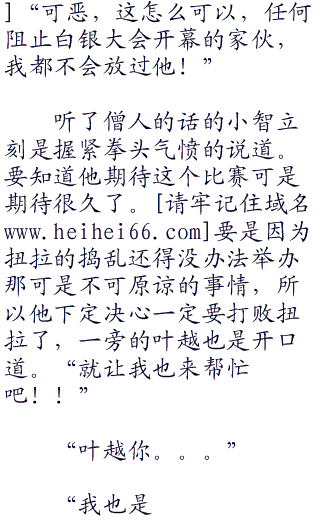 ]“可恶，这怎么可以，任何
阻止白银大会开幕的家伙，
我都不会放过他！”
听了僧人的话的小智立
刻是握紧拳头气愤的说道。
要知道他期待这个比赛可是
期待很久了。[请牢记住域名
www.heihei66.com]要是因为
扭拉的捣乱还得没办法举办
那可是不可原谅的事情，所
以他下定决心一定要打败扭
拉了，一旁的叶越也是开口
道。“就让我也来帮忙
吧！！”
“叶越你。。。”
“我也是